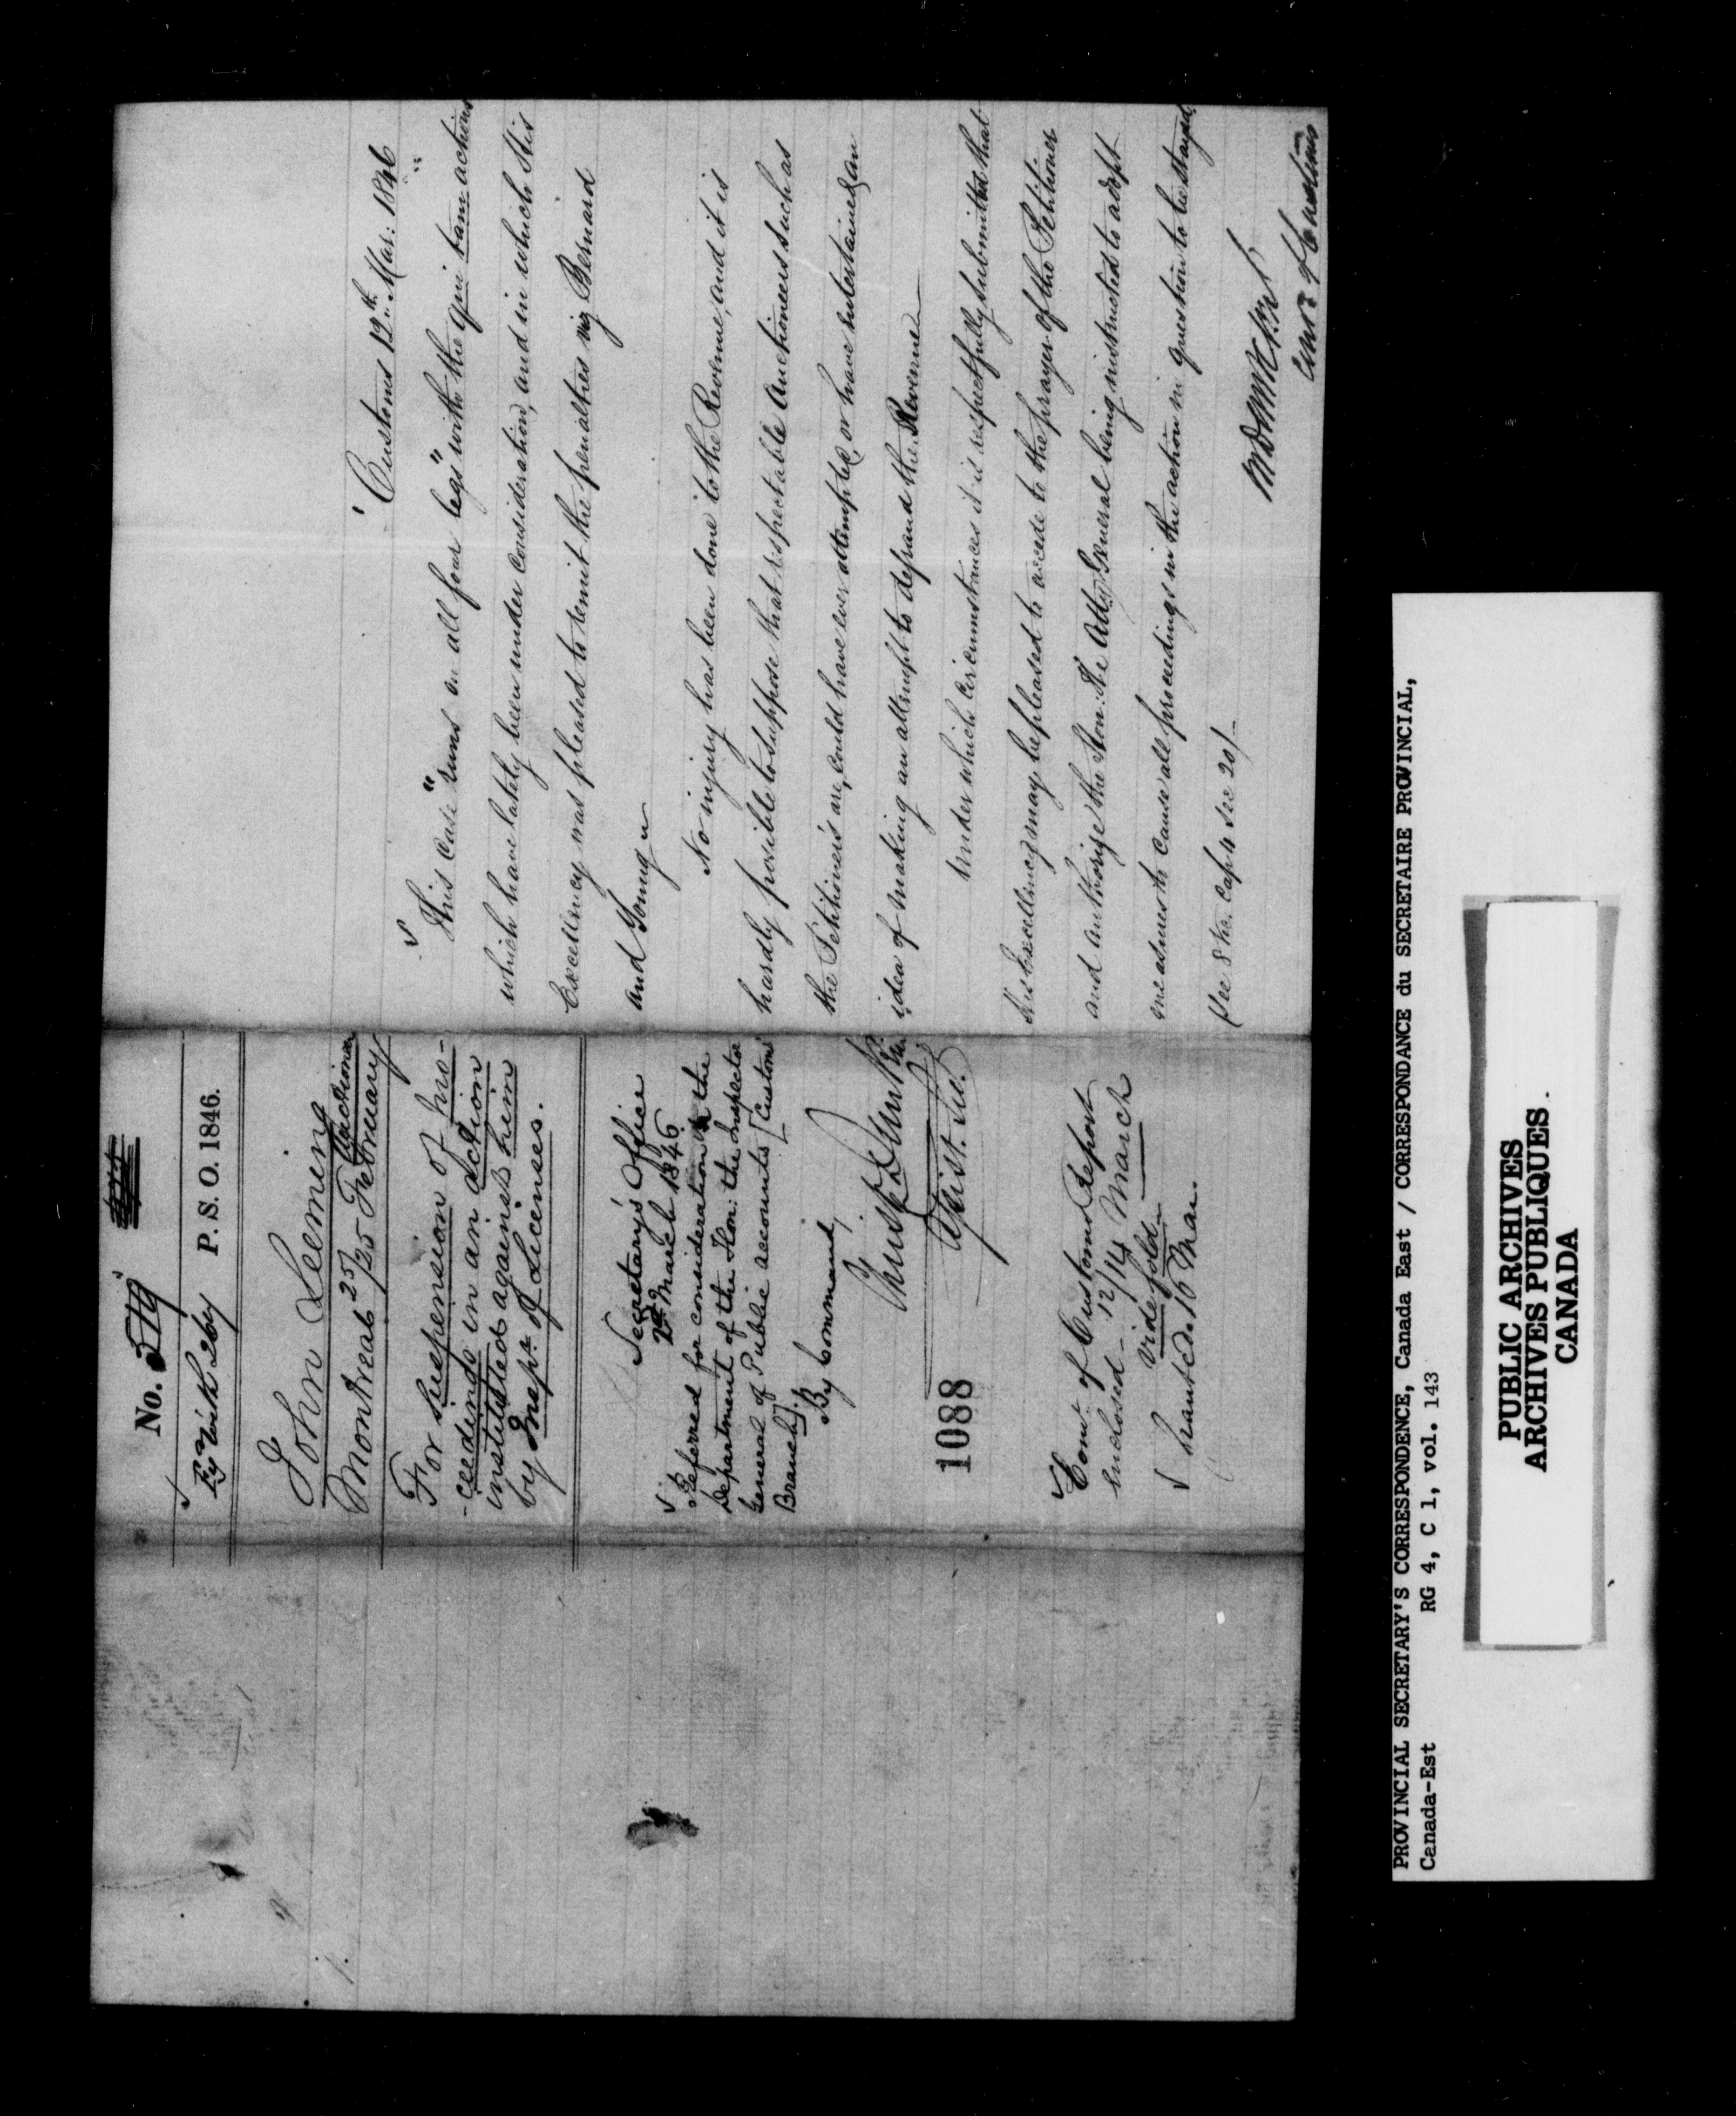 No. 519
P. S. O. 1846.
John Leeming
Auctioneer
Montreal 25/25 February
For suspension of pro-
-ceedings in an action
instituted against him
by Inspr. of Licenses.
Secretary's Office
2nd March 1846.
Referred for consideration in the
Department of the Hon: the Inspector
General of Public accounts [Customs
Branch].
By Command,
Asst. Sec.
1088
Comr. of Customs Report
enclosed - 12/14 March
vide fold
granted. 16 Mar.
Customs 12th Mar: 1846
This Case "runs on all four legs" with the qui tam actions
which have lately been under Consideration, and in which His
Excellency was pleased to remit the penalties viz Bernard
and Young
No injury has been done to the Revenue, and it is
hardly possible to suppose that respectable Auctioneers such as
the Petitioners are, could have ever attempted or have entertained an
idea of making an attempt to defraud the Revenue
Under which Circumstances it is respectfully submitted that
His Excellency may be pleased to accede to the prayer of the Petitioner
and authorize the Hon: the Atty General being instructed to adopt
measures to cause all proceedings in the action in question to be stayed
(See 8 Vic. Cap 4 Sec 20/-
Comr of Customs
PROVINCIAL SECRETARY'S CORRESPONDENCE, Canada East / CORRESPONDANCE du SECRETAIRE PROVINCIAL,
Canada-Est RG 4, C 1, vol. 143
PUBLIC ARCHIVES
ARCHIVES PUBLIQUES
CANADA